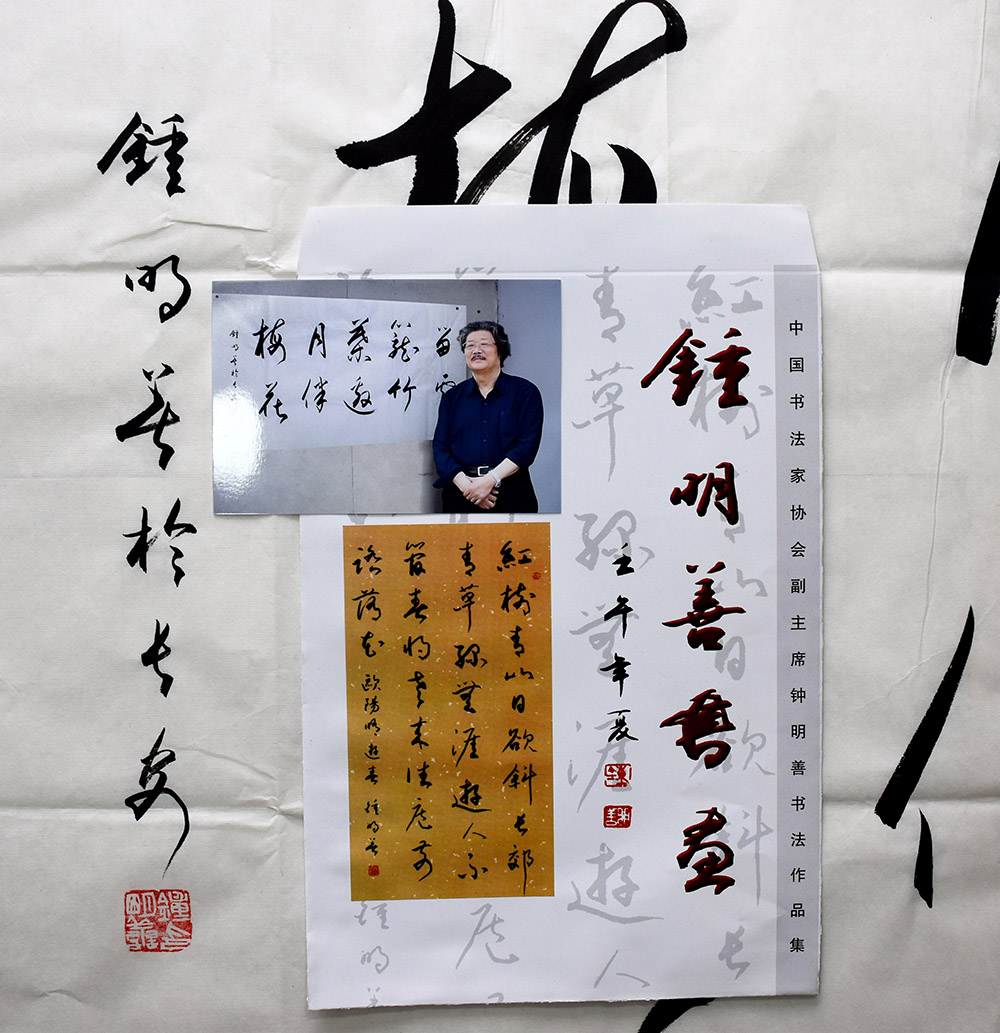 鍾明善於長安
留雲
籠竹
葉邀
月伴
梅花
中国书法家协会副主席钟明善书法作品集
鍾明善書畫
壬午年夏
紅樹青山日欲斜長郊
青草綠無涯遊人不
管春將老來往亭前
踏落花 歐陽脩遊春 鍾明善